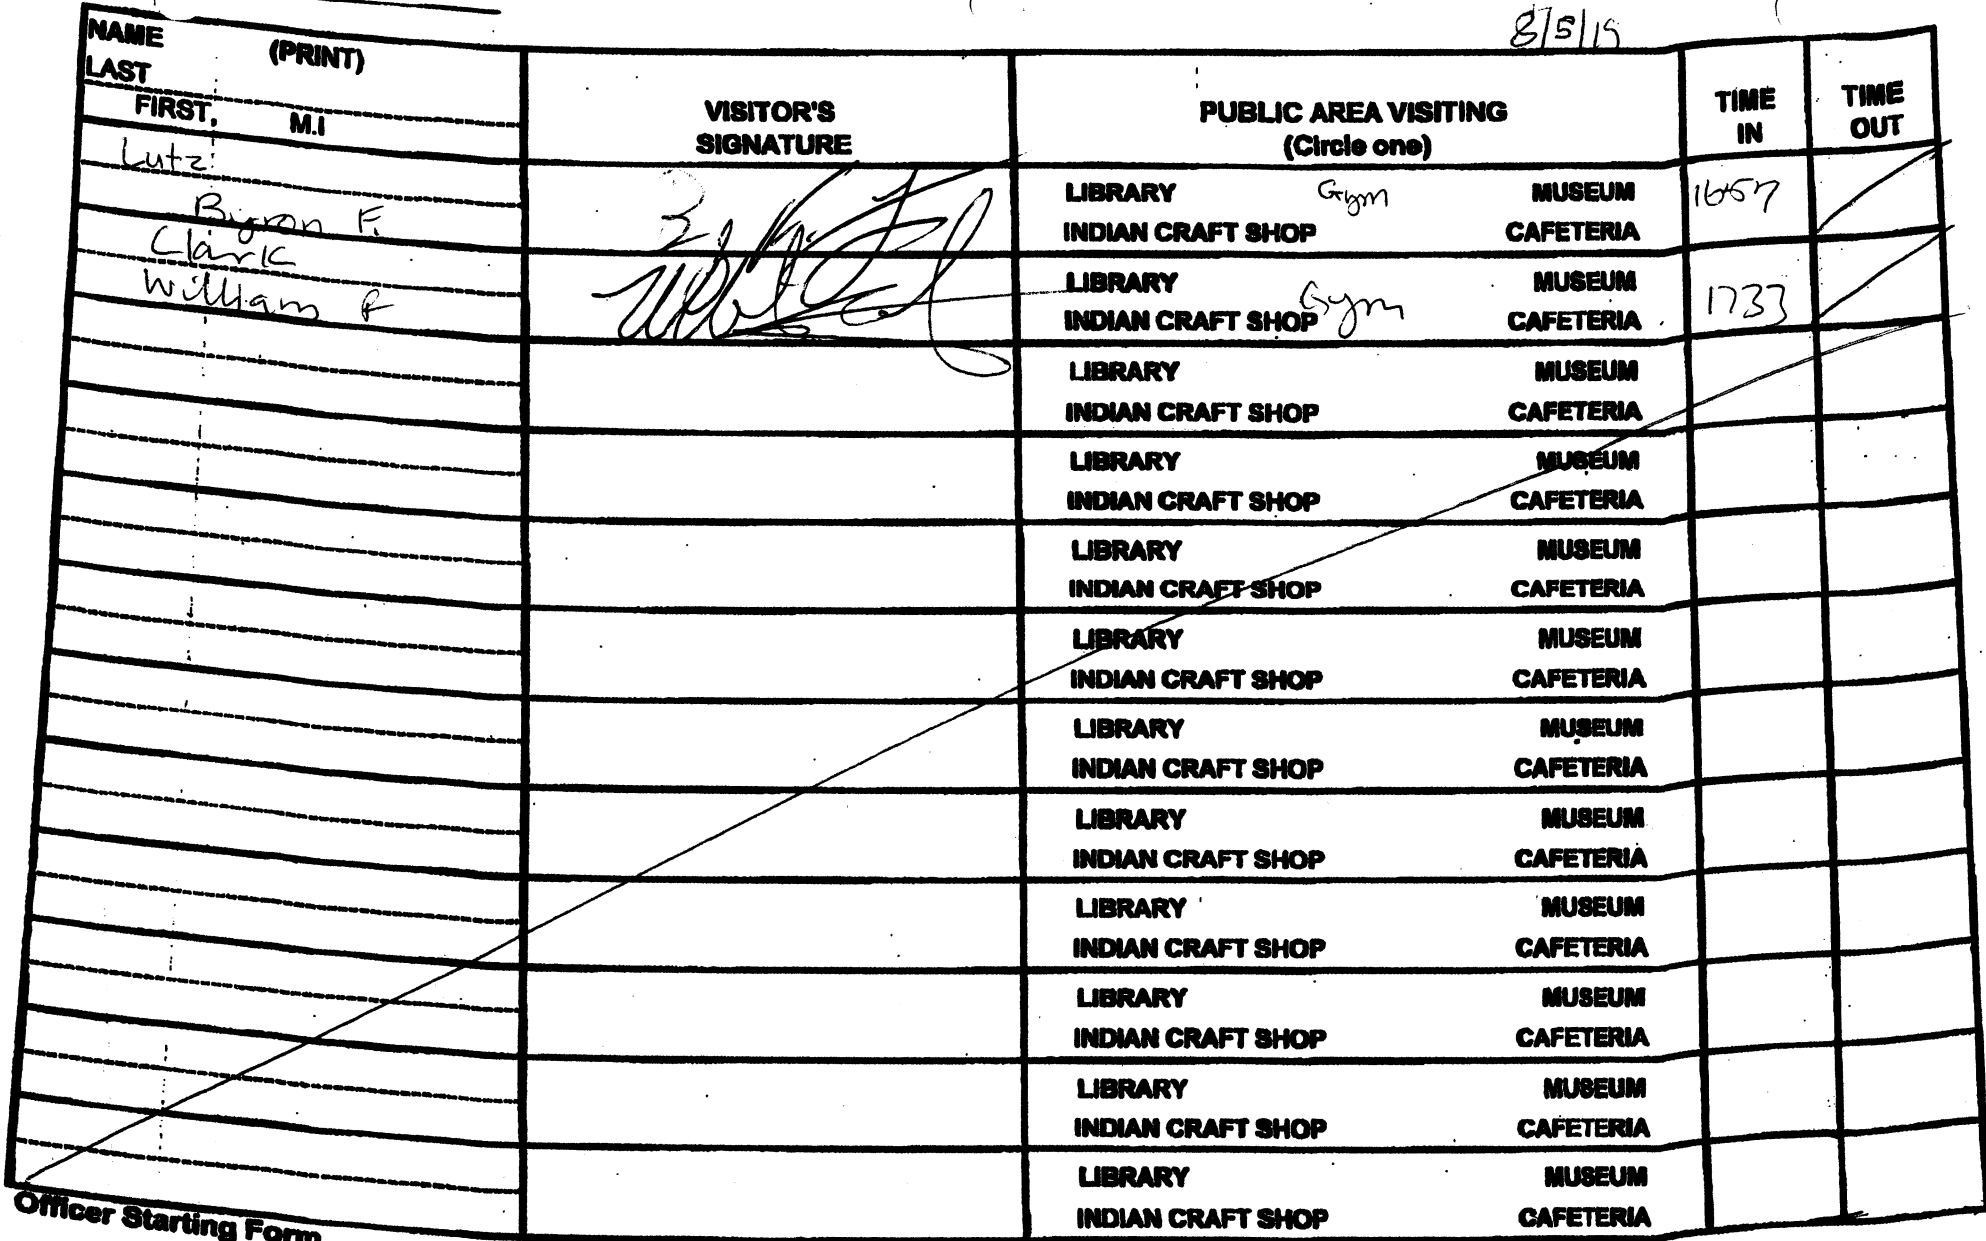 8/5/19
NAME (PRINT)
LAST
FIRST, M.I
VISITOR'S
SIGNATURE
PUBLIC AREA VISITING
(Circle one)
TIME
IN
TIME
OUT
Lutz
Byron F.
LIBRARY Gym MUSEUM
INDIAN CRAFT SHOP CAFETERIA
1657
Clark
William F
LIBRARY MUSEUM
Gym
INDIAN CRAFT SHOP CAFETERIA
1733
LIBRARY MUSEUM
INDIAN CRAFT SHOP CAFETERIA
LIBRARY MUSEUM
INDIAN CRAFT SHOP CAFETERIA
LIBRARY MUSEUM
INDIAN CRAFT SHOP CAFETERIA
LIBRARY MUSEUM
INDIAN CRAFT SHOP CAFETERIA
LIBRARY MUSEUM
INDIAN CRAFT SHOP CAFETERIA
LIBRARY MUSEUM
INDIAN CRAFT SHOP CAFETERIA
LIBRARY MUSEUM
INDIAN CRAFT SHOP CAFETERIA
LIBRARY MUSEUM
INDIAN CRAFT SHOP CAFETERIA
LIBRARY MUSEUM
INDIAN CRAFT SHOP CAFETERIA
LIBRARY MUSEUM
INDIAN CRAFT SHOP CAFETERIA
Officer Starting Form